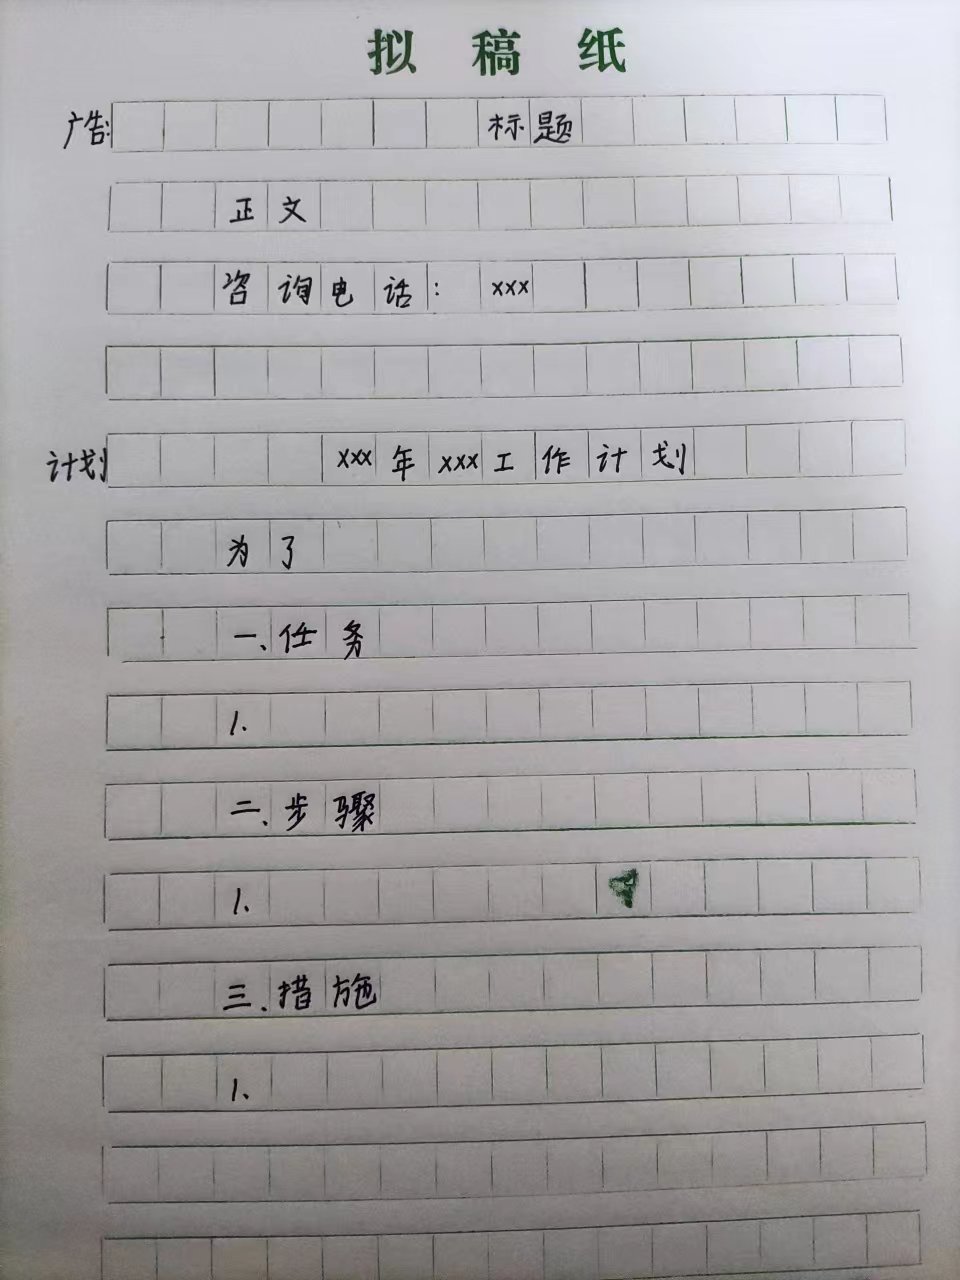 拟稿纸
广告: 标题
正文
咨询电话: xxx
计划 xxx年xxx工作计划
为了
一、任务
1.
二、步骤
1.
三、措施
1.